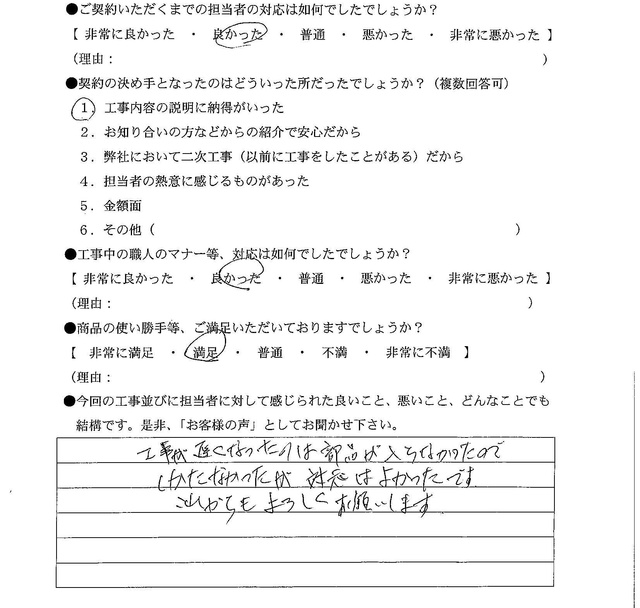 ●ご契約いただくまでの担当者の対応は如何でしたでしょうか？
【 非常に良かった ・ 良かった ・ 普通 ・ 悪かった ・ 非常に悪かった 】
（理由：　　　）
●契約の決め手となったのはどういった所だったでしょうか？（複数回答可）
１．工事内容の説明に納得がいった
２．お知り合いの方などからの紹介で安心だから
３．弊社において二次工事（以前に工事をしたことがある）だから
４．担当者の熱意に感じるものがあった
５．金額面
６．その他（　　　）
●工事中の職人のマナー等、対応は如何でしたでしょうか？
【 非常に良かった ・ 良かった ・ 普通 ・ 悪かった ・ 非常に悪かった 】
（理由：　　　）
●商品の使い勝手等、ご満足いただいておりますでしょうか？
【 非常に満足 ・ 満足 ・ 普通 ・ 不満 ・ 非常に不満 】
（理由：　　　）
●今回の工事並びに担当者に対して感じられた良いこと、悪いこと、どんなことでも
結構です。是非、「お客様の声」としてお聞かせ下さい。
工事が遅くなったのは部品が入らなかったので
しかたなかったが 対応はよかったです
これからもよろしくお願いします